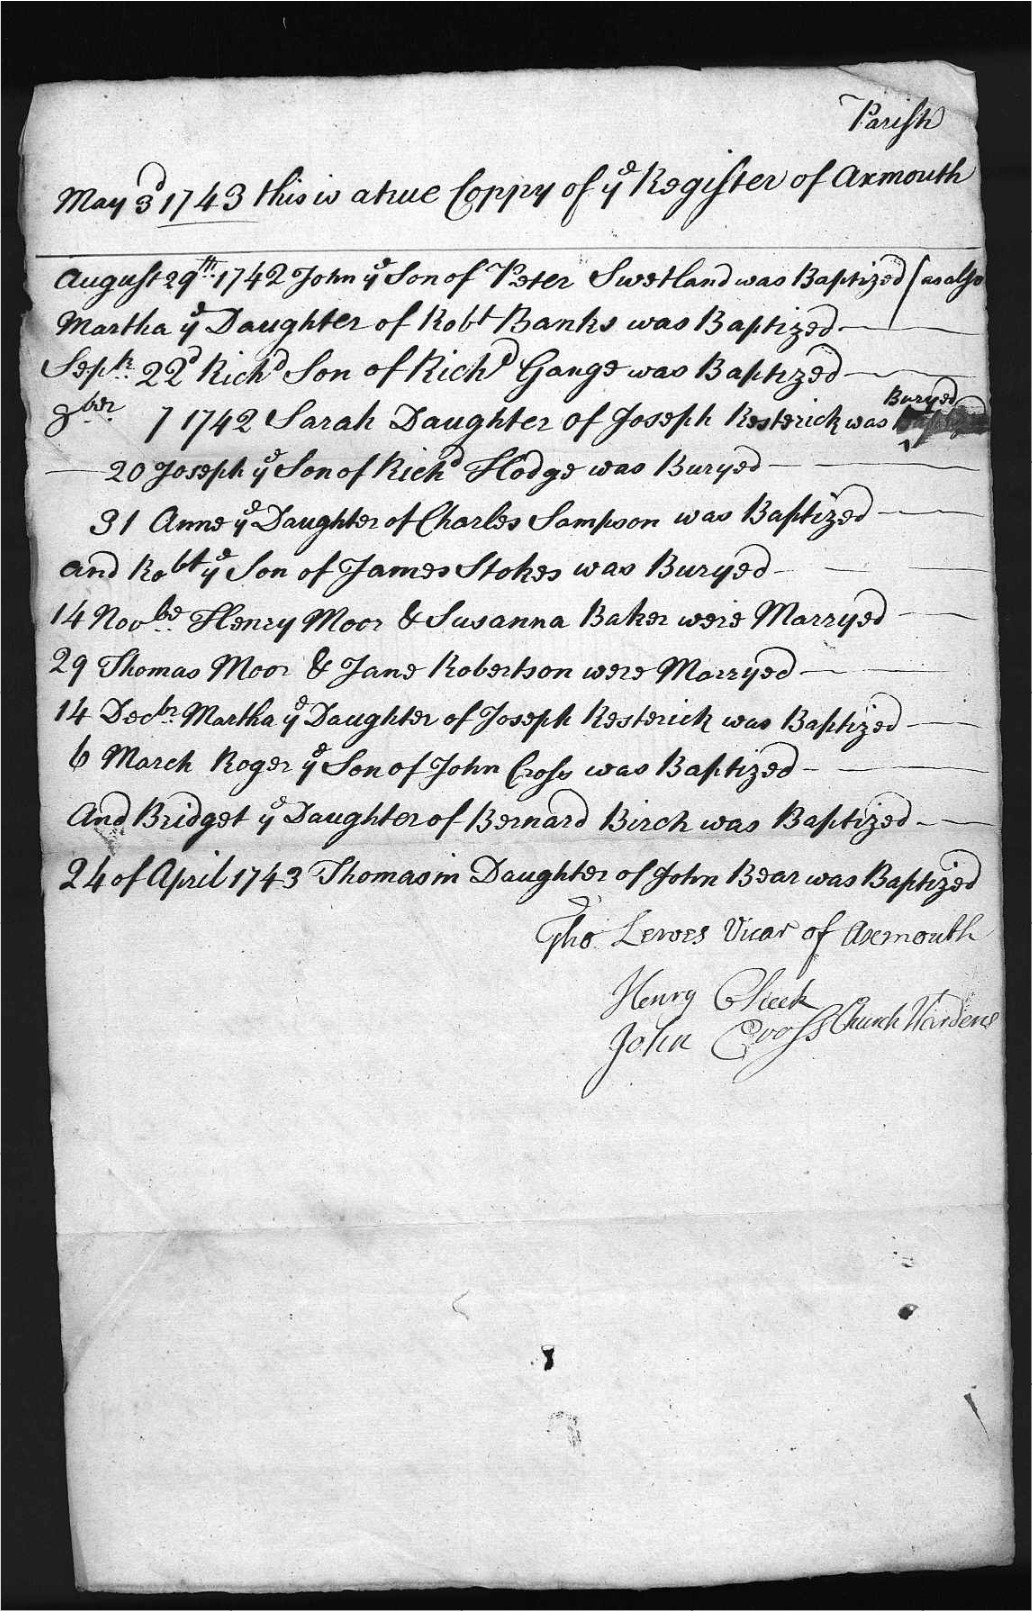 Parish
May 3d 1743 this is a true Coppy of ye Register of Axmouth
August 29th 1742 John ye Son of Peter Swetland was Baptized / as also
Martha ye Daughter of Robt Banks was Baptized
Septr 22d Richd Son of Richd Gange was Baptized
8ber 7 1742 Sarah Daughter of Joseph Resterick was Buryed
20 Joseph ye Son of Richd Hodge was Buryed
31 Anne ye Daughter of Charles Sampson was Baptized
and Robt ye Son of James Stokes was Buryed
14 Novbe Henry Moor & Susanna Baker were Marryed
29 Thomas Moor & Jane Robertson were Marryed
14 Decbr Martha ye Daughter of Joseph Resterick was Baptized
6 March Roger ye Son of John Cross was Baptized
And Bridget ye Daughter of Bernard Birch was Baptized
24 of April 1743 Thomasin Daughter of John Bear was Baptized
Tho Lewes Vicar of Axmouth
Henry Cheek
John Cross Church Wardens